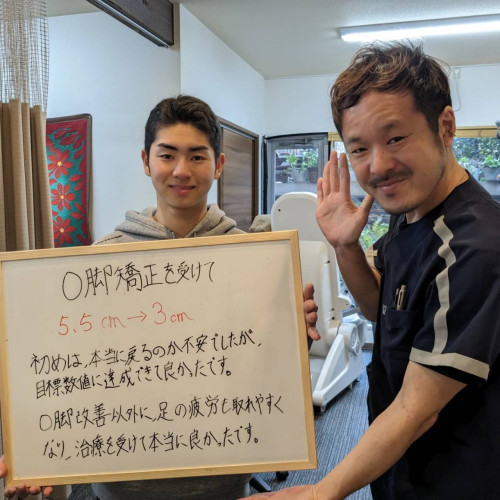 ○脚矯正を受けて
5.5cm→3cm
初めは、本当に戻るのか不安でしたが、
目標数値に達成できて良かったです。
○脚改善以外に、足の疲労も取れやすく
なり、治療を受けて本当に良かったです。